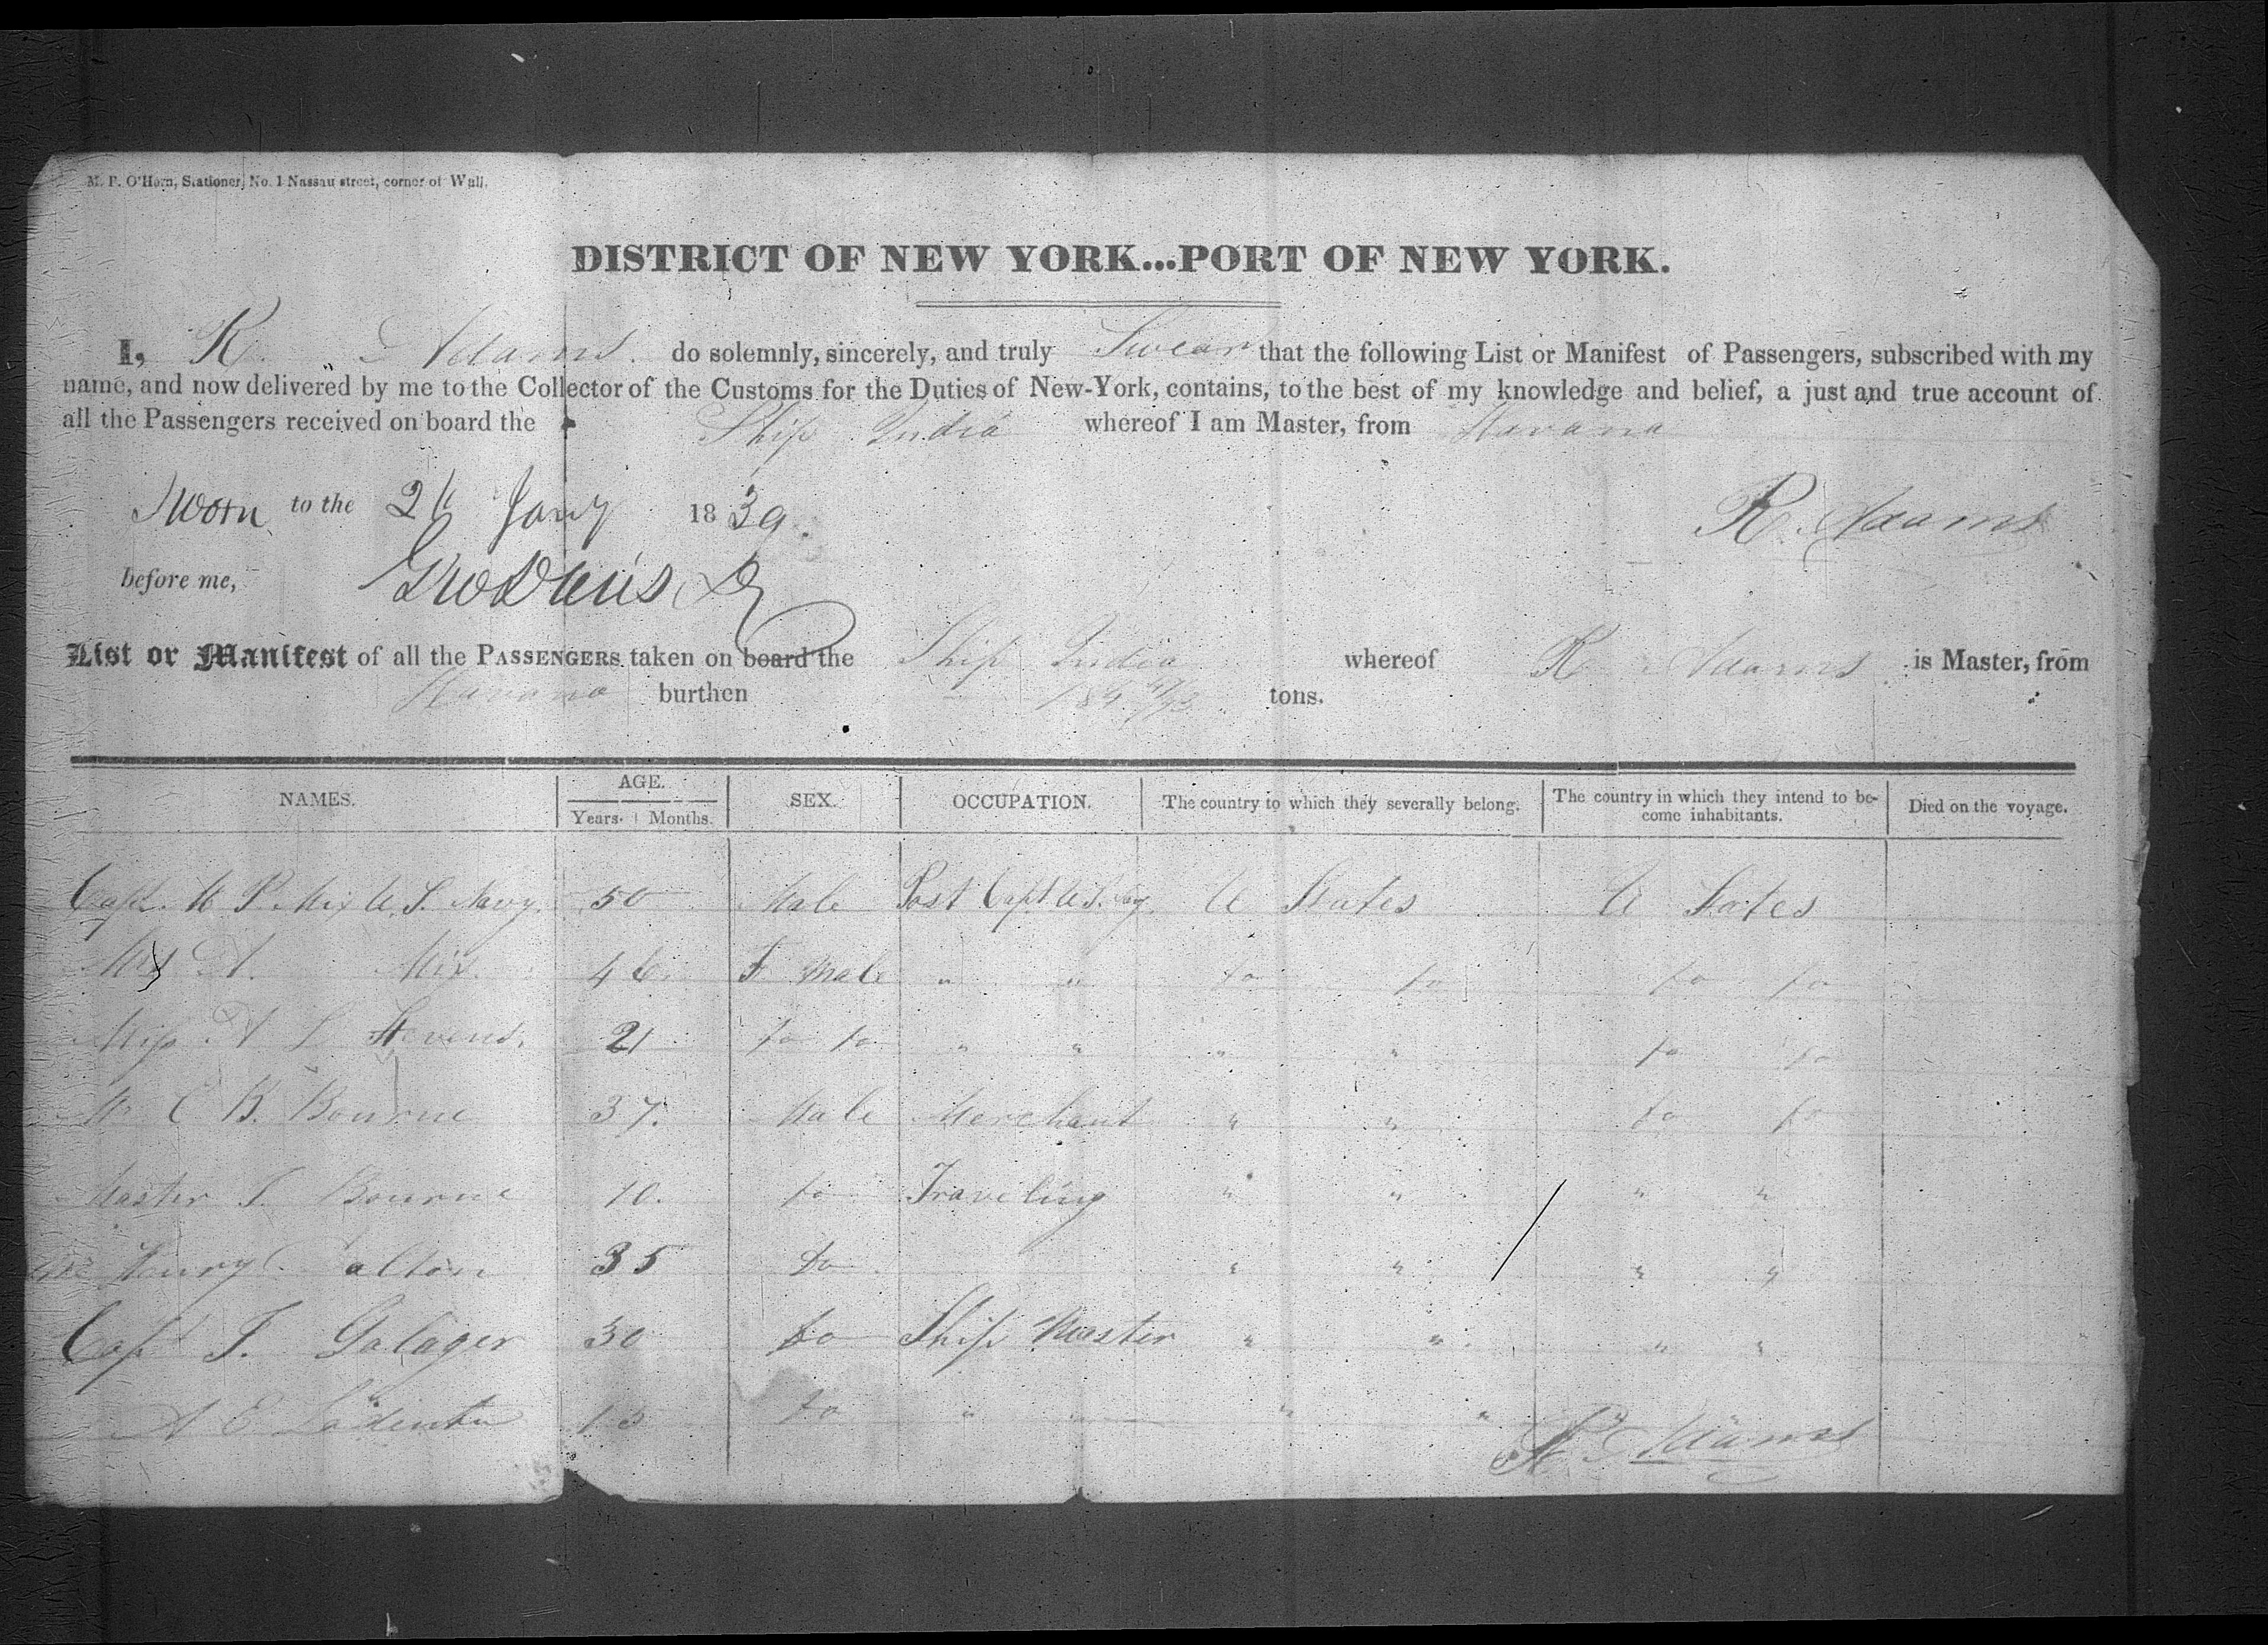 M. P. O'Horn, Stationer, No. 1 Nassau street, corner of Wall.
DISTRICT OF NEW YORK...PORT OF NEW YORK.
I, R. Adams. do solemnly, sincerely, and truly Swear that the following List or Manifest of Passengers, subscribed with my
name, and now delivered by me to the Collector of the Customs for the Duties of New-York, contains, to the best of my knowledge and belief, a just and true account of
all the Passengers received on board the Ship India whereof I am Master, from Havana
Sworn to the Jany 1839. R. Adams
before me,
List or Manifest of all the PASSENGERS taken on board the Ship India whereof R Adams is Master, from
Havana burthen tons.
NAMES. AGE. SEX. OCCUPATION. The country to which they severally belong. The country in which they intend to be-
come inhabitants. Died on the voyage.
Years. Months.
Capt. M P. Mix U. S. Navy. 50 Male Post Capt U.S. Navy U States U States
Mrs A. Mix. 46 F Male " " Do Do Do Do
Miss A L Stevens. 21 Do Do " " " " Do Do
Mr C B. Bourne 37. Male Merchant " " Do Do
Master T. Bourne 10. Do Traveling " " " "
Henry 35 Do " " " "
Cap T. Galager 30 Do Ship Master " " " "
A E Do " " " " "
R Adams